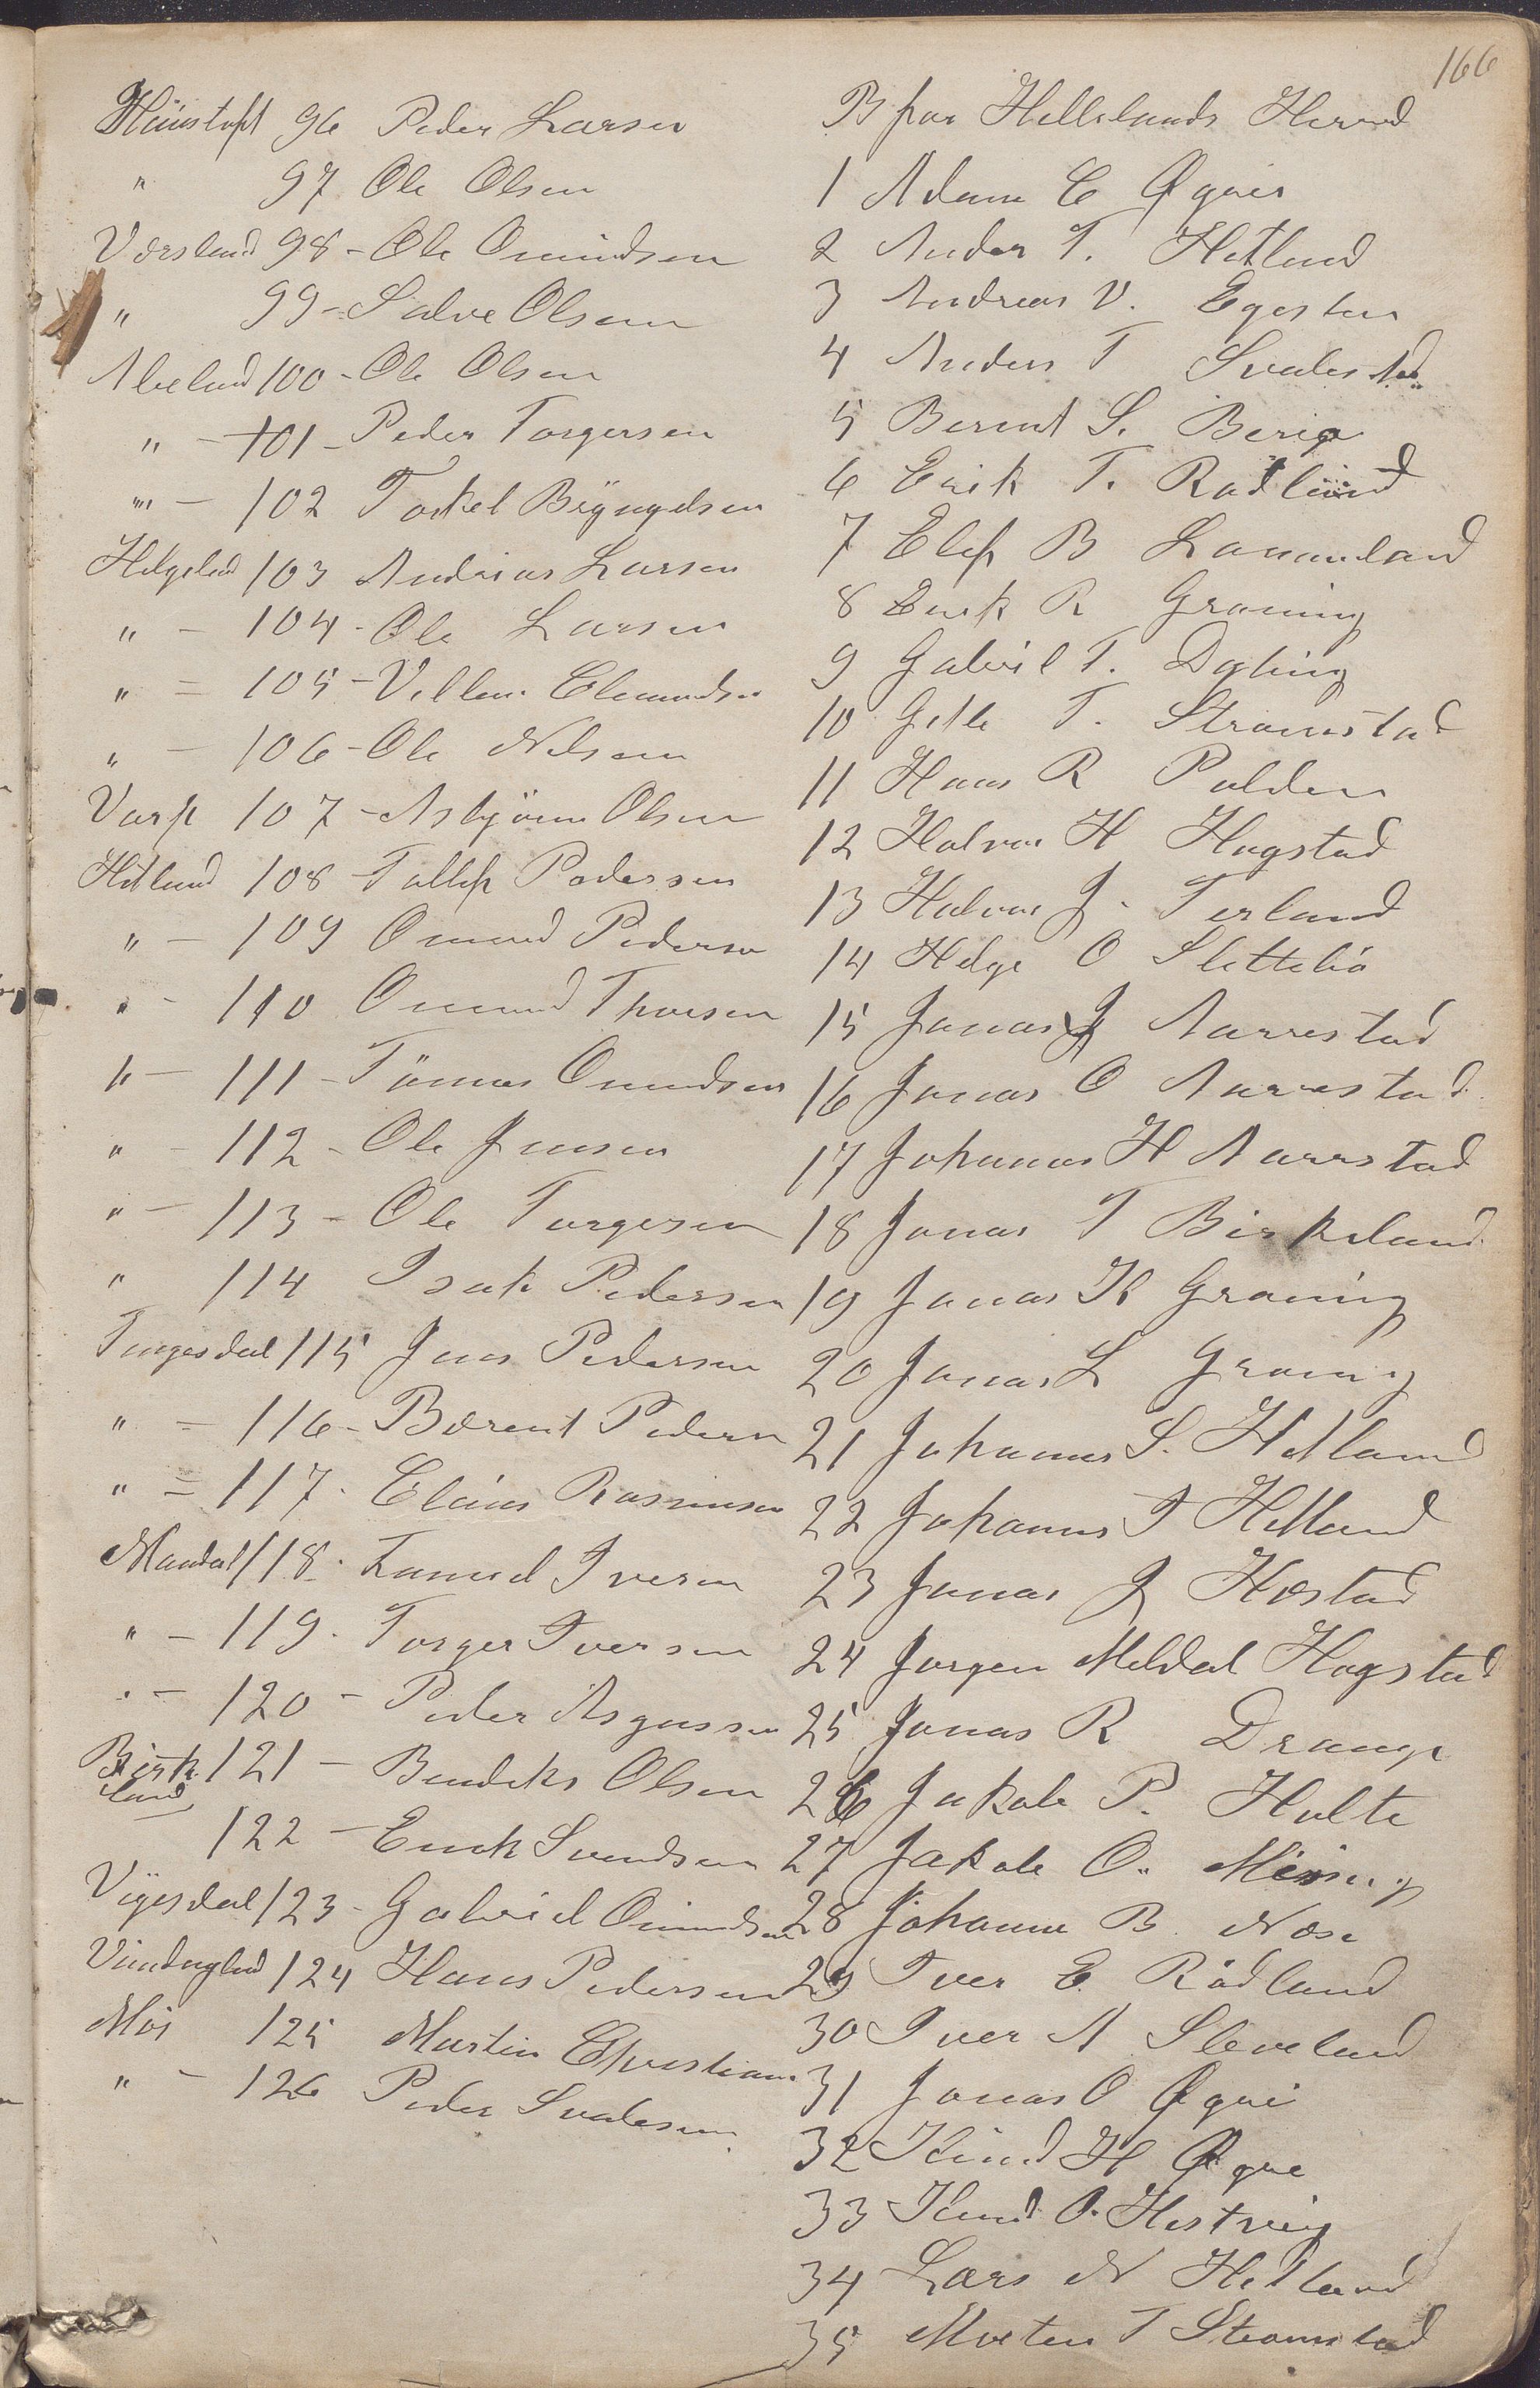 166
96 Peder Larsen
" 97 Ole Olsen
Værsland 98 - Ole Omundsen
" 99 - Salve Olsen
Abeland 100 - Ole Olsen
" - 101 - Peder Torgersen
" - 102 Torkel Bryngelsen
Helgeland 103 Andreas Larsen
" - 104 - Ole Larsen
" = 105 - Villum
" - 106 - Ole Nilsen
Varp 107 - Asbjörn Olsen
Hetland 108 - Tollef Pedersen
" - 109 Omund Pedersen
" - 110 Omund Thorsen
" - 111 - Tönnes Omundsen
" - 112 - Ole Jensen
" - 113 - Ole Torgersen
" 114 Isak Pedersen
Tengesdal 115 Jens Pedersen
" = 116 - Berent Pedersen
" = 117 - Elias Rasmusen
Mandal 118 - Iversen
" - 119 - Torger Iversen
" - 120 - Peder Asgussen
Birkland 121 - Bendiks Olsen
122 - Enok Svendsen
Vigesdal 123 - Gabriel Omundsen
124 Hans Pedersen
Moi 125 Martin Christians
" - 126 Peder Svalesen
B for Hellelands Herred
1 Adam C Øgrei
2 Ander T. Hetland
3 Andreas V. Egesten
4 Anders T Svalestad
5 Berent S. Berg
6 Erik T. Rødland
7 Elef B
8 Enok R Graning
9 Gabriel T. Dyting
10 Jelle T. Strømstad
11 Hans R Polden
12 Halvor H Hogstad
13 Halvor J. Terland
14 Helge O Slettebö
15 Jonas J Aarrestad
16 Jonas O Aarrestad
17 Johannes H Aarrestad
18 Jonas T Birkeland
19 Jonas K Graning
20 Jonas L Graning
21 Johannes S. Hetland
22 Johannes T Hetland
23 Jonas J Hæstad
24 Jørgen Meldal Hogstad
25 Jonas R Drange
26 Jakob P. Holte
27 Jakob O. Mising
28 Johanne B Nose
29 Iver E. Rödland
30 Iver A Sleveland
31 Jonas O Øgrei
32 Knud H Øgre
33 Knud O. Hestveig
34 Lars N Hetland
35 Morten T Strømstad